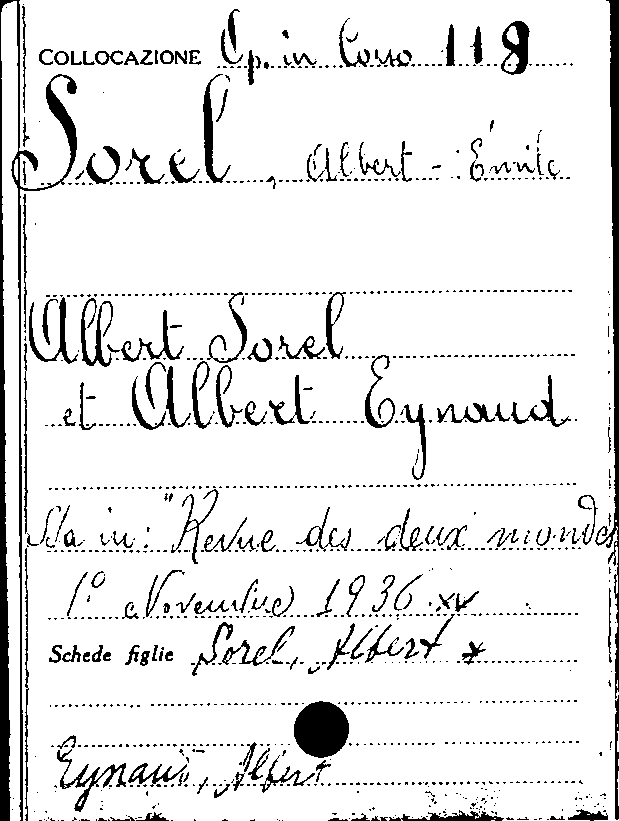 COLLOCAZIONE Op. in Corso 118
Sorel, Albert - Émile
Albert Sorel
et Albert Eynaud
Sta in: "Revue des deux mondes,
1º Novembre 1936 xv
Schede figlie Sorel, Albert *
Eynaud, Albert